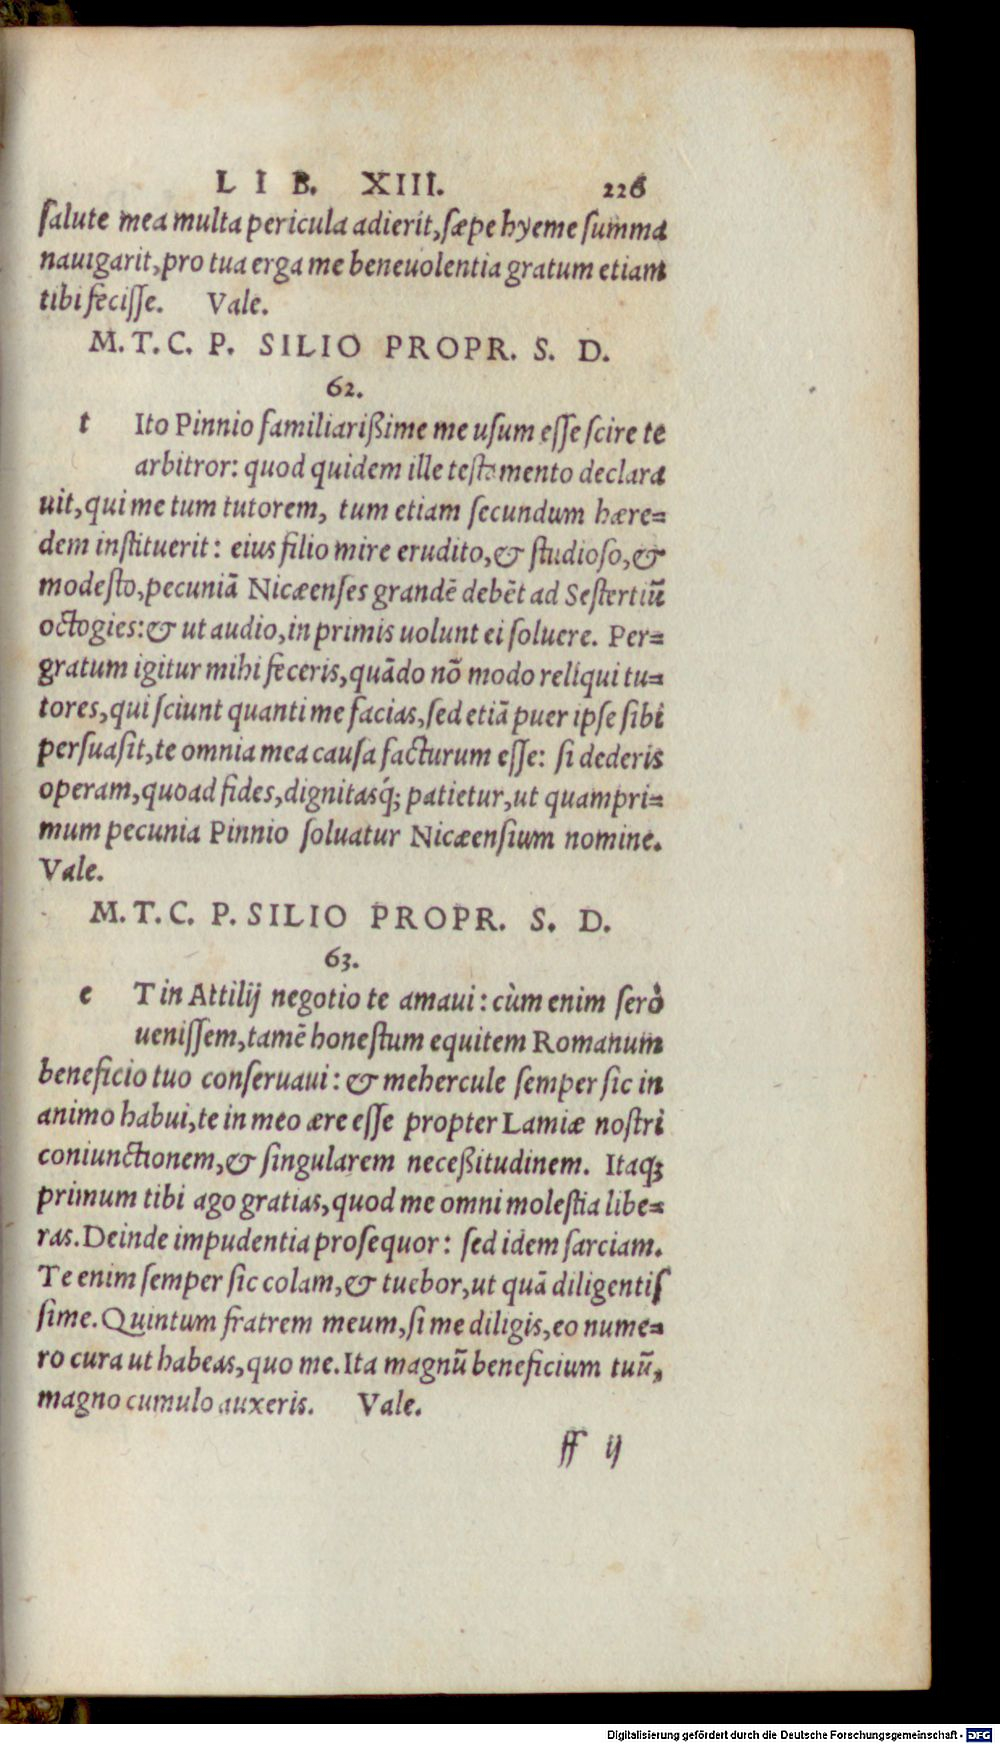 LIB. XIII. 226
ſalute mea multa pericula adierit, ſæpe hyeme ſumma
nauigarit, pro tua erga me beneuolentia gratum etiam
tibi feciſſe. Vale.
M. T. C. P. SILIO PROPR. S. D.
62.
t Ito Pinnio familiarißime me uſum eſſe ſcire te
arbitror: quod quidem ille teſtamento declara
uit, qui me tum tutorem, tum etiam ſecundum hære=
dem inſtituerit: eius filio mire erudito, & ſtudioſo, &
modeſto, pecuniā Nicæenſes grandē debēt ad Seſtertiū
octogies: & ut audio, in primis uolunt ei ſoluere. Per=
gratum igitur mihi feceris, quādo nō modo reliqui tu=
tores, qui ſciunt quanti me facias, ſed etiā puer ipſe ſibi
perſuaſit, te omnia mea cauſa facturum eſſe: ſi dederis
operam, quoad fides, dignitasq́; patietur, ut quampri=
mum pecunia Pinnio ſoluatur Nicæenſium nomine.
Vale.
M. T. C. P. SILIO PROPR. S. D.
63.
e T in Attilij negotio te amaui: cùm enim ſerò
ueniſſem, tamē honeſtum equitem Romanum
beneficio tuo conſeruaui: & mehercule ſemper ſic in
animo habui, te in meo ære eſſe propter Lamiæ noſtri
coniunctionem, & ſingularem neceßitudinem. Itaq;
primum tibi ago gratias, quod me omni moleſtia libe=
ras. Deinde impudentia proſequor: ſed idem ſarciam.
Te enim ſemper ſic colam, & tuebor, ut quā diligentiſ
ſime. Quintum fratrem meum, ſi me diligis, eo nume=
ro cura ut habeas, quo me. Ita magnū beneficium tuū,
magno cumulo auxeris. Vale.
ff ij
Digitalisierung gefördert durch die Deutsche Forschungsgemeinschaft - DFG